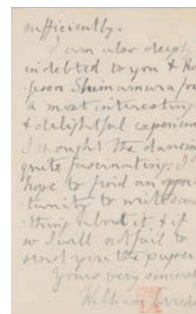 sufficiently.
I am also deeply
indebted to you &
Shimamura for
a most interesting
& delightful experience
I thought the dancing
quite fascinating. I
hope to find an oppor-
tunity to write some
thing about it & if
so I will not fail to
send you the paper.
Yours very sincerely
William